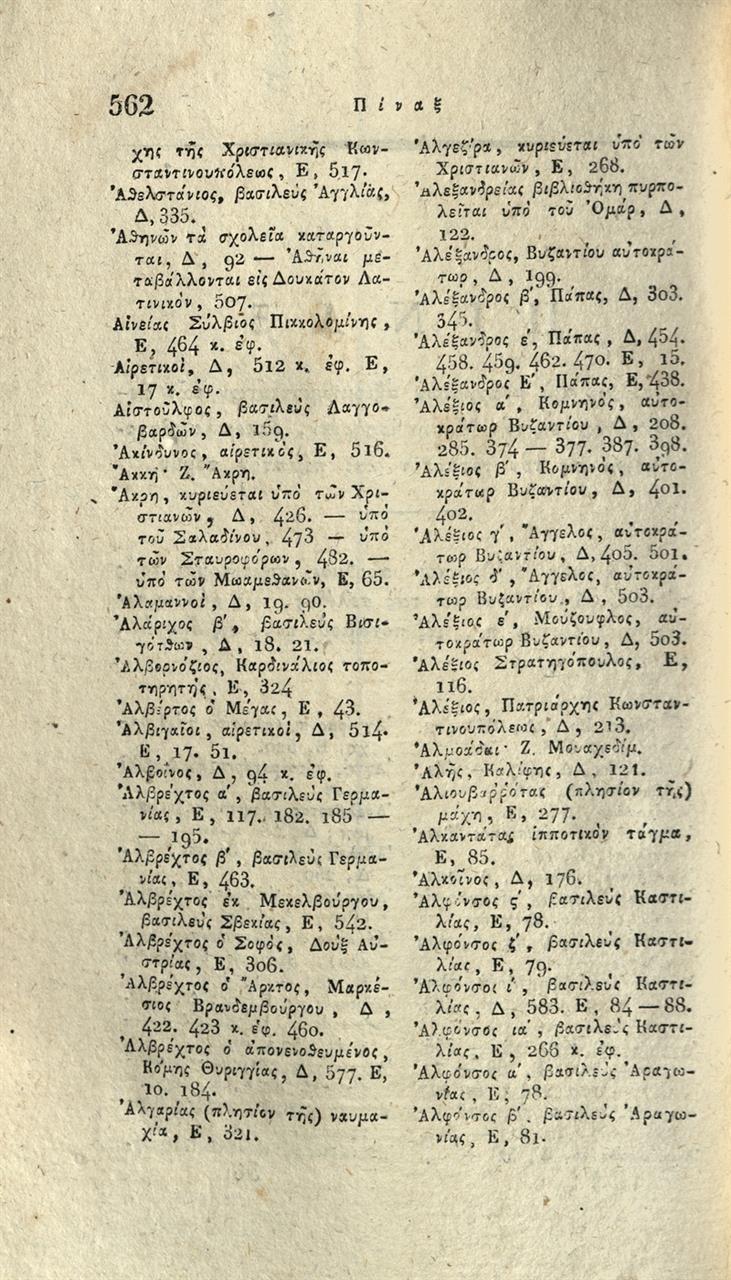 562 Πίναξ
χης τῆς Χριστιανικῆς Κων-
σταντινουπόλεως, Ε, 517.
Ἀθελστάνιος, βασιλεὺς Ἀγγλίας,
Δ, 335.
Ἀθηνῶν τὰ σχολεῖα καταργοῦν-
ται, Δ, 92 — Ἀθῆναι με-
ταβάλλονται εἰς Δουκάτον Λα-
τινικὸν, 507.
Αἰνείας Σύλβιος Πικκολομίνης,
Ε, 464 κ. ἐφ.
Αἱρετικοὶ, Δ, 512 κ. ἐφ. Ε,
17 κ. ἐφ.
Αἰστοῦλφος, βασιλεὺς Λαγγο-
βαρδῶν, Δ, 159.
Ἀκίνδυνος, αἱρετικὸς, Ε, 516.
Ἀκκή· Ζ. Ἄκρη.
Ἄκρη, κυριεύεται ὑπὸ τῶν Χρι-
στιανῶν, Δ, 426. — ὑπὸ
τοῦ Σαλαδίνου, 473 — ὑπὸ
τῶν Σταυροφόρων, 482. —
ὑπὸ τῶν Μωαμεθανῶν, Ε, 65.
Ἀλαμαννοὶ, Δ, 19. 90.
Ἀλάριχος β', βασιλεὺς Βισι-
γότθων, Δ, 18. 21.
Ἀλβορνόζιος, Καρδινάλιος τοπο-
τηρητὴς, Ε, 324
Ἀλβέρτος ὁ Μέγας, Ε, 43.
Ἀλβιγαῖοι, αἱρετικοὶ, Δ, 514.
Ε, 17. 51.
Ἀλβοῖνος, Δ, 94 κ. ἐφ.
Ἀλβρέχτος α', βασιλεὺς Γερμα-
νίας, Ε, 117. 182. 185 —
— 195.
Ἀλβρέχτος β', βασιλεὺς Γερμα-
νίας, Ε, 463.
Ἀλβρέχτος ἐκ Μεκελβούργου,
βασιλεὺς Σβεκίας, Ε, 542.
Ἀλβρέχτος ὁ Σοφὸς, Δοὺξ Αὐ-
στρίας, Ε, 306.
Ἀλβρέχτος ὁ Ἄρκτος, Μαρκέ-
σιος Βρανδεμβούργου, Δ,
422. 423 κ. ἐφ. 460.
Ἀλβρέχτος ὁ ἀπονενοθευμένος,
Κόμης Θυριγγίας, Δ, 577. Ε,
10. 184.
Ἀλγαρίας (πλησίον τῆς) ναυμα-
χία, Ε, 321.
Ἀλγεζίρα, κυριεύεται ὑπὸ τῶν
Χριστιανῶν, Ε, 268.
Ἀλεξανδρείας βιβλιοθήκη πυρπο-
λεῖται ὑπὸ τοῦ Ὀμάρ, Δ,
122.
Ἀλέξανδρος, Βυζαντίου αὐτοκρά-
τωρ, Δ, 199.
Ἀλέξανδρος β', Πάπας, Δ, 303.
345.
Ἀλέξανδρος ε', Πάπας, Δ, 454.
458. 459. 462. 470. Ε, 15.
Ἀλέξανδρος Ε', Πάπας, Ε, 438.
Ἀλέξιος α', Κομνηνὸς, αὐτο-
κράτωρ Βυζαντίου, Δ, 208.
285. 374 — 377. 387. 398.
Ἀλέξιος β', Κομνηνὸς, αὐτο-
κράτωρ Βυζαντίου, Δ, 401.
402.
Ἀλέξιος γ', Ἄγγελος, αὐτοκρά-
τωρ Βυζαντίου, Δ, 405. 501.
Ἀλέξιος δ', Ἄγγελος, αὐτοκρά-
τωρ Βυζαντίου, Δ, 503.
Ἀλέξιος ε', Μούζουφλος, αὐ-
τοκράτωρ Βυζαντίου, Δ, 503.
Ἀλέξιος Στρατηγόπουλος, Ε,
116.
Ἀλέξιος, Πατριάρχης Κωνσταν-
τινουπόλεως, Δ, 213.
Ἀλμοάδαι· Ζ. Μουαχεδίμ.
Ἀλῆς, Καλίφης, Δ, 121.
Ἀλιουβαρρότας (πλησίον τῆς)
μάχη, Ε, 277.
Ἀλκαντάτας ἱπποτικὸν τάγμα,
Ε, 85.
Ἀλκοῖνος, Δ, 176.
Ἀλφόνσος ς', βασιλεὺς Καστι-
λίας, Ε, 78.
Ἀλφόνσος ζ', βασιλεὺς Καστι-
λίας, Ε, 79.
Ἀλφόνσος ι', βασιλεὺς Καστι-
λίας, Δ, 583. Ε, 84 — 88.
Ἀλφόνσος ια', βασιλεὺς Καστι-
λίας, Ε, 266 κ. ἐφ.
Ἀλφόνσος α', βασιλεὺς Ἀραγω-
νίας, Ε, 78.
Ἀλφόνσος β', βασιλεὺς Ἀραγω-
νίας, Ε, 81.